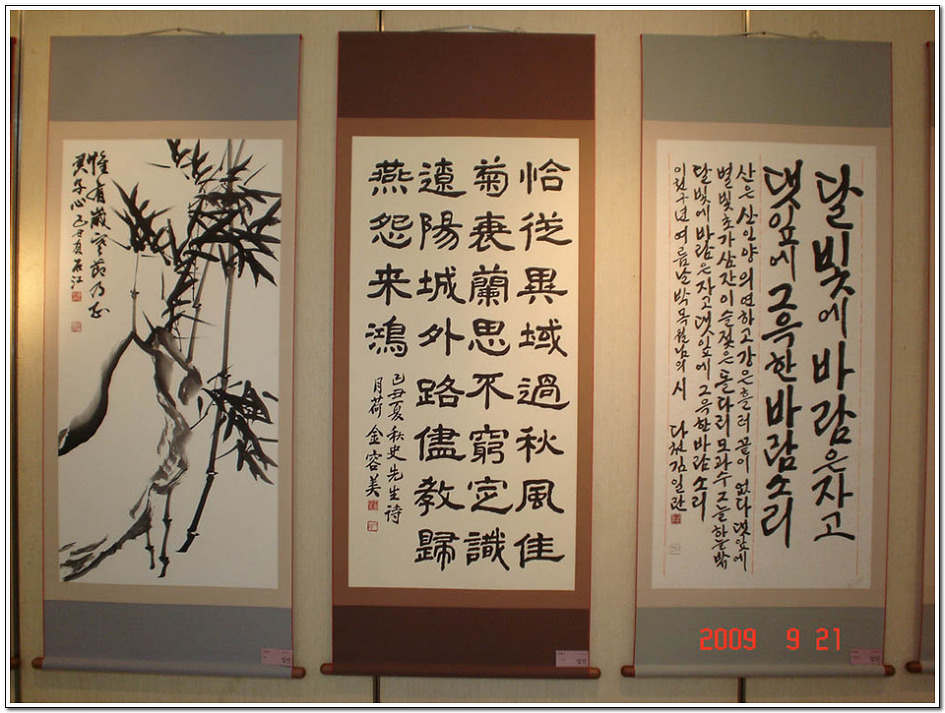 惟有歲寒節乃知
君子心 己丑夏 石江
恰從異域過秋風佳
菊衰蘭思不窮定識
遼陽城外路儘教歸
燕怨来鴻
己丑夏秋史先生诗
月荷 金容美
달빛에 바람은 자고
댓잎에 그윽한 바람소리
산은 산인양 의연하고 강은 흘러 끝이 없다 댓잎에
별빛 초가삼간 이슬 젖은 돌다리 모과수 그늘 하늘밖
달빛에 바람은 자고 댓잎에 그윽한 바람소리
이천구년 여름날 박목월님의 시 다천 김일란
2009 9 21